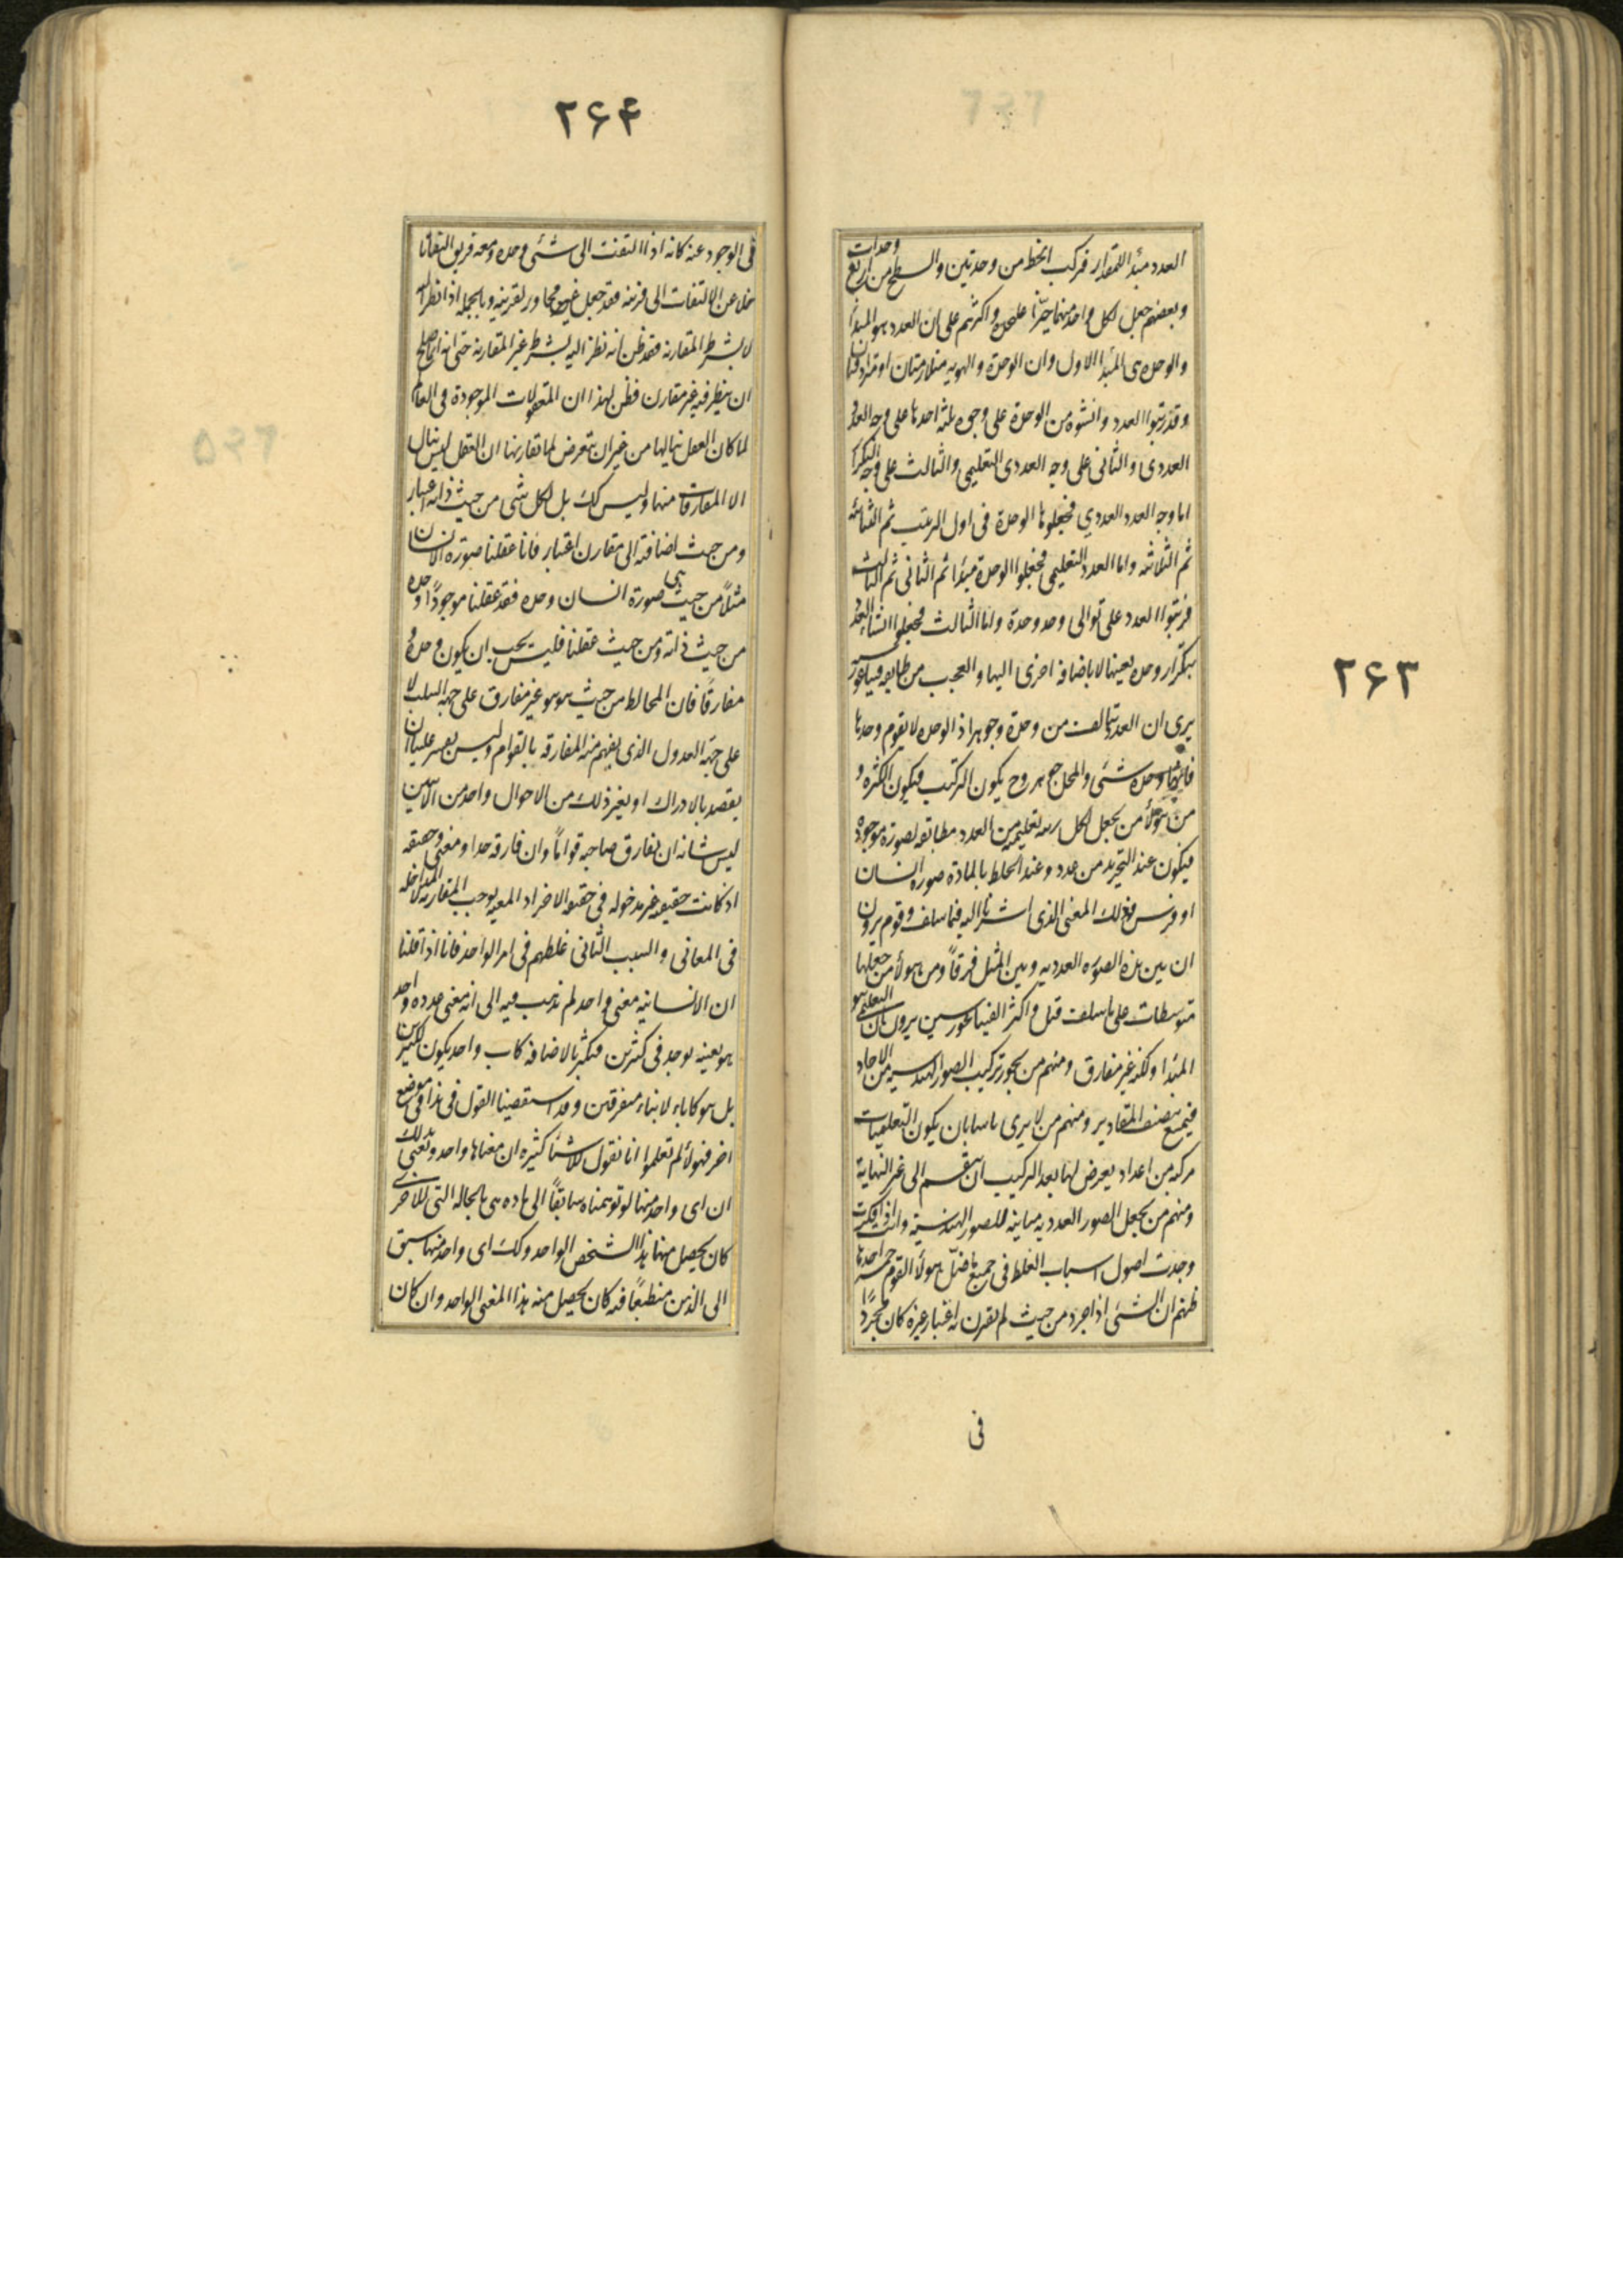 ٢۶٣
العدد مبدأ للمقدار فركب الخط من وحدتين والسطح من اربع وحدات
وبعضهم جعل لكل واحد منهما حيّزا علىحدة واكثرهم على ان العدد هو المبدأ
والوحدة هى المبدأ الاول وان الوحدة والهويه متلازمتان او مترادفتان
وقد رتبوا العدد وانشوه من الوحدة على وجوه ثلثه احدها على وجه العدد
العددى والثانى على وجه العددى التعليمى والثالث على وجه التكرار
اما وجه العدد العددي فجعلوها الوحدة فى اول الترتيب ثم الثنائيه
ثم الثلاثيه واما العدد التعليمى فجعلوا الوحدة مبدا ثم الثانى ثم الثالث
فرتبوا العدد على توالى وحد وحدة واما الثالث فجعلوا انشاء العدد
بتكرار وحده بعينها لا باضافه اخرى اليها والعجب من طايفه فيثاغورسيه
يرى ان العدد يتالف من وحدة وجوهر اذ الوحده لا تقوم وحدها
فانها وحده شئ والمحل جوهر وح يكون التركيب فيكون الكثره و
من هولاء من يجعل لكل رتبه تعليميه من العدد مطابقه لصورة موجودة
فيكون عند التجريد من عدد وعند الخلط بالمادة صورة انسان
او فرس وذلك المعنى الذى اشرنا اليه فيما سلف وقوم يرون
ان بين هذه الصوره العدديه وبين المثل فرقاً ومن هولاء من جعلها
متوسطات على ما سلف قبل واكثر الفيثاغورسيين يرون ان التعليمى هو
المبدا ولكنه غير مفارق ومنهم من يجوز تركيب الصور الهندسيه من الاحاد
فيمنع تنصيف المقادير ومنهم من لا يرى باسا بان يكون التعليميات
مركبه من اعداد يعرض لها بعد التركيب ان ينقسم الى غير النهاية
ومنهم من يجعل الصور العدديه مباينه للصور الهندسية وانت اذا فكرت
وجدت اصول اسباب الغلط فى جميع ما ضلّ هولاء القوم خمسه احدها
ظنهم ان الشئ اذا جرد من حيث لم يقترن به اعتبار غيره كان مجردًا
فى
٢۶۴
فى الوجود عنه كانه اذا التفت الى شئ وحده ومعه قرين التفاتا
خلا عن الالتفات الى قرينه فقد جعل غير مجاور لقرينه وبالجمله اذا نظر اليه
لا بشرط المقارنه فقد ظن انه نظر اليه بشرط غير المقارنة حتى انه انما صلح
ان ينظر فيه غير مقارن فظن لهذا ان المعقولات الموجودة فى العالم
لما كان العقل ينالها من غير ان يتعرض لما تقارنها ان العقل ليس ينال
الا المفارقات منها وليس كك بل لكل شئ من حيث ذاته اعتبار
ومن حيث اضافته الى مقارن اعتبار فانا عقلنا صورة الانسان
مثلاً من حيث هى صورة انسان وحده فقد عقلنا موجودًا وحده
من حيث ذاته ومن حيث عقلنا فليس يجب ان يكون وحده
مفارقًا فان المخالط من حيث هو هو غير مفارق على جهه السلب لا
على جهة العدول الذى يفهم منه المفارقه بالقوام وليس يعسر علينا ان
يقصد بالادراك او بغير ذلك من الاحوال واحد من الاثنين
ليس شانه ان يفارق صاحبه قوامًا وان فارقه حدا ومعنى وحقيقه
اذ كانت حقيقته غير مدخوله فى حقيقه الاخر اذ المعيه يوجب المقارنه لا المداخله
فى المعانى والسبب الثانى غلطهم فى امر الواحد فانا اذا قلنا
ان الانسانيه معنى واحد لم نذهب فيه الى انه معنى عدده واحد
هو بعينه يوجد فى كثيرين فيكثر بالاضافه كاب واحد يكون لكثيرين
بل هو كاباء لابناء متفرقين وقد استقصينا القول فى هذا فى موضع
اخر فهولاء لم تعلموا انا نقول لاشياء كثيره ان معناها واحد ونعنى بذلك
ان اى واحد منها لو توهمناه سابقًا الى ماده هى بالحاله التى للاخرى
كان يحصل منها هذا الشخص الواحد وكك اى واحد منها سبق
الى الذهن منطبعًا فيه كان يحصل منه هذا المعنى الواحد وان كان